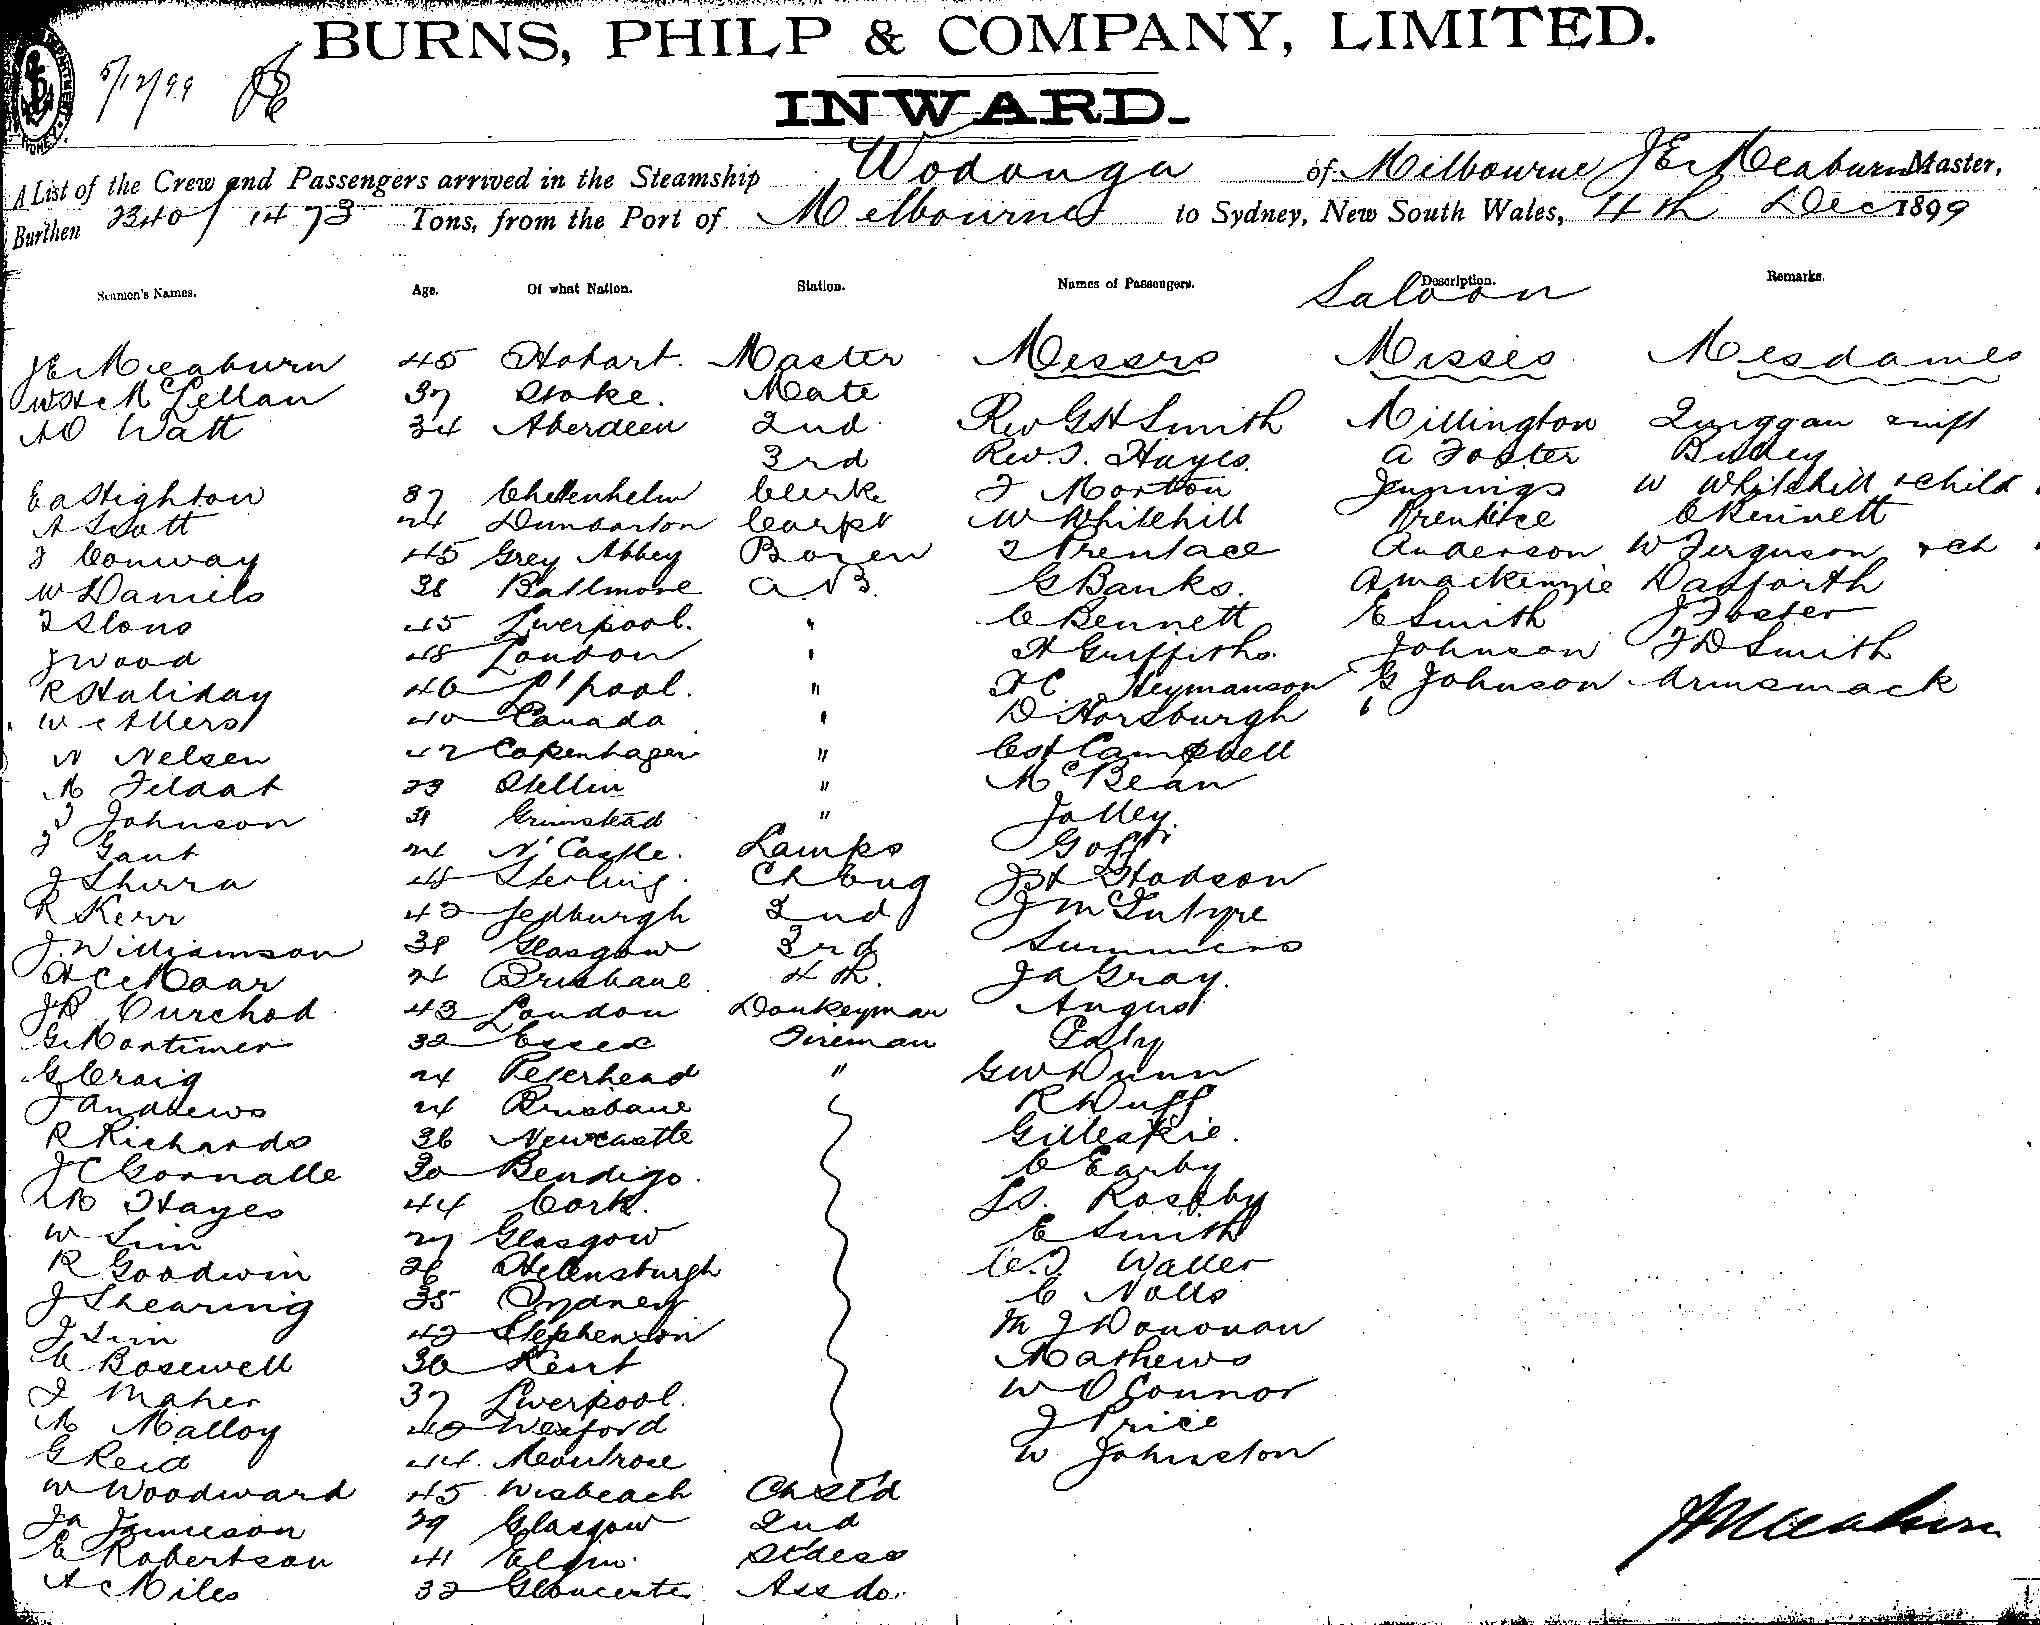 BURNS, PHILP & COMPANY, LIMITED.
5/12/99
INWARD.
A List of the Crew and Passengers arrived in the Steamship Wodonga of Melbourne J E Meaburn Master,
Burthen 2340/1473 Tons, from the Port of Melbourne to Sydney, New South Wales, 4th Dec 1899
Seamen's Names. Age. Of what Nation. Station. Names of Passengers. Description. Remarks.
Saloon
J E Meaburn 45 Hobart. Master Messrs Misses Mesdames
W H McLellan 37 Stoke. Mate
A O Watt 34 Aberdeen 2nd Rev G H Smith Millington
3rd Rev. J. Hayes. A Foster
E A Highton 37 Cheltenhelm Clerk J Morton Jennings W Whitehill & child
A Scott 24 Dumbarton Carpt W Whitehill Prentice C Kennett
J Conway 45 Grey Abbey Bozen J Prentace Anderson W Ferguson & ch
W Daniels 38 Baltimore A.B. G Banks. A Mackenzie Danforth
J Slons 45 Liverpool. " C Bennett E Smith J Foster
J Wood 48 London " H Griffiths. Johnson J D Smith
R Haliday 40 L'pool. " H C Heymanson G Johnson Armsmack
W Ellers 40 Canada " D Horsburgh
N Nelsen 42 Copenhagen " C H Campbell
M Feldat 23 Stellin " McBean
J Johnson 31 Grimstead " Jolley.
J Gant 24 N'Castle. Lamps Goff
J Shirra 48 Sterling. Ch Eng J H Hodson
R Kerr 43 Jedburgh 2nd J McIntyre
J. Williamson 38 Glasgow 3rd Summers
H C Maar 24 Brisbane 4th. J A Gray.
J B Curchod 43 London Donkeyman Angus
G Mortimer 32 Essex Fireman
G Craig 24 Peterhead " G W Dunn
J Andrews 24 Brisbane R Duff
R Richards 36 Newcastle Gillespie.
J C Gornalle 30 Bendigo. C Earby
M Hayes 44 Cork. Roseby
W Sim 27 Glasgow E Smith
R Goodwin 26 Helensburgh C. J. Waller
J Shearing 35 Sydney C Nolls
J Sim 42 Stephenson M J Donovan
C Bosewell 30 Kent Mathews
J Maher 37 Liverpool. W O Connor
M Malloy 42 Wexford J Price
G Reid 44. Montrose W Johnston
W Woodward 45 Wisbeach Ch St'd
Ja Jamieson 29 Glasgow 2nd
E Robertson 41 Elgin. St'dess
A C Miles 32 Gloucester Ass do.
J E Meaburn